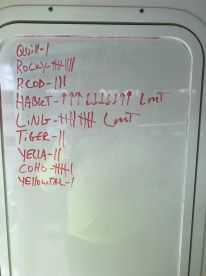 QUILL-I
ROCKY-卌 IIII
P.COD-IIII
HABUT-↑↑↑↓↓↓↓↓↑↑ LMT
LING-卌 II 卌 LMT
TIGER-II
YELLA-II
COHO-卌 I
YELLOWTAIL-I